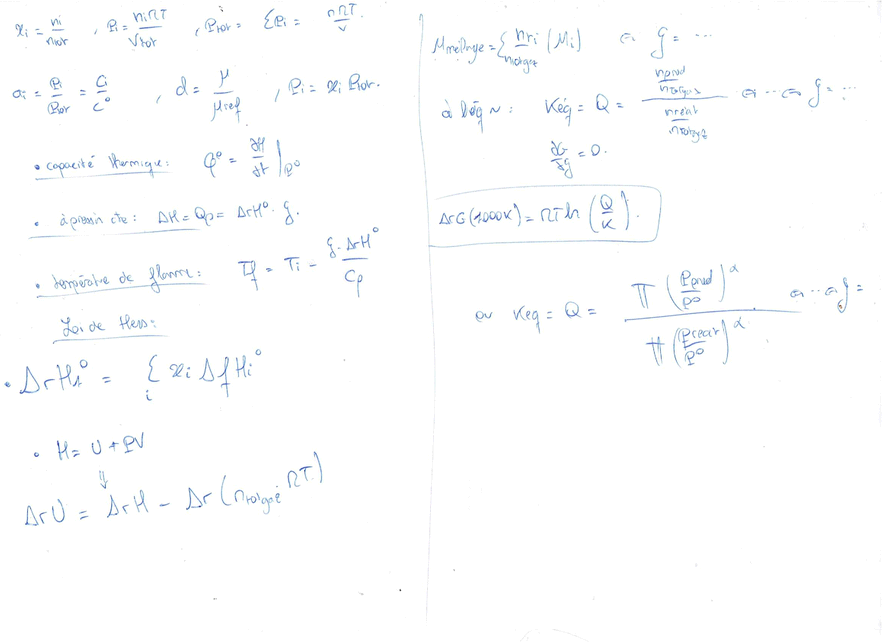 xi = ni/ntot , Pi = niRT/Vtot , Ptot = ΣPi = nRT/V
ai = Pi/Ptot = Ci/C° , d = μ/μref , Pi = xi Ptot.
• capacité thermique: Cp° = ∂H/∂t |P°
• à pression cte: ΔH = Qp = ΔrH° · ξ.
• température de flamme: Tf = Ti - ξ·ΔrH°/Cp
Loi de Hess:
• ΔrHi° = Σi xi ΔfHi°
• H = U + PV
⇓
ΔrU = ΔrH - Δr(ntotgaz RT)
Mmélange = Σ nri/ntotgaz (Mi) ⇔ ξ = ...
à l'éq ~ : Kéq = Q = (nprod/ntotgaz)/(nréact/ntotgaz) ⇔ ... ⇔ ξ = ...
∂G/∂ξ = 0.
ΔrG(1000K) = RT ln(Q/K).
ou Keq = Q = Π(Pprod/P°)^α / Π(Préact/P°)^α ⇔ ... ⇔ ξ =